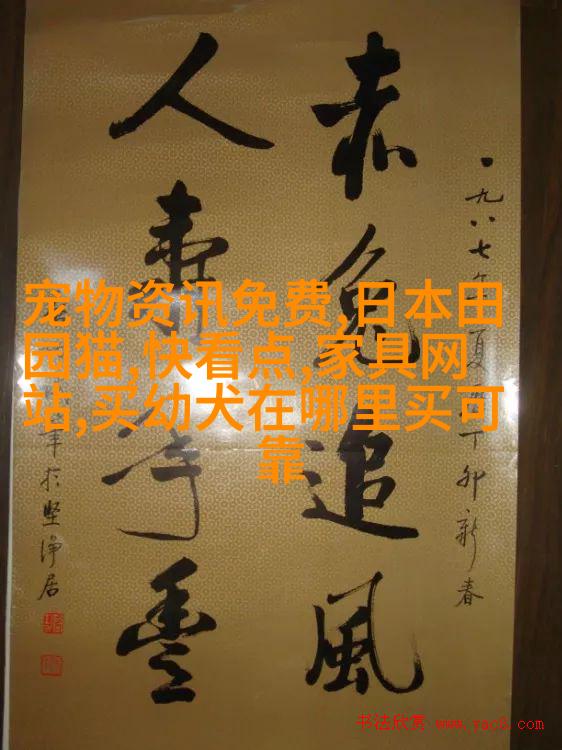 宠物资讯免费,日本田
园猫,快看点,家具网
站,买幼犬在哪里买可
靠
一九八七年夏丁卯新春
赤兔追風
人寿年豐
于坚净居
书法欣赏 www.yac8.com